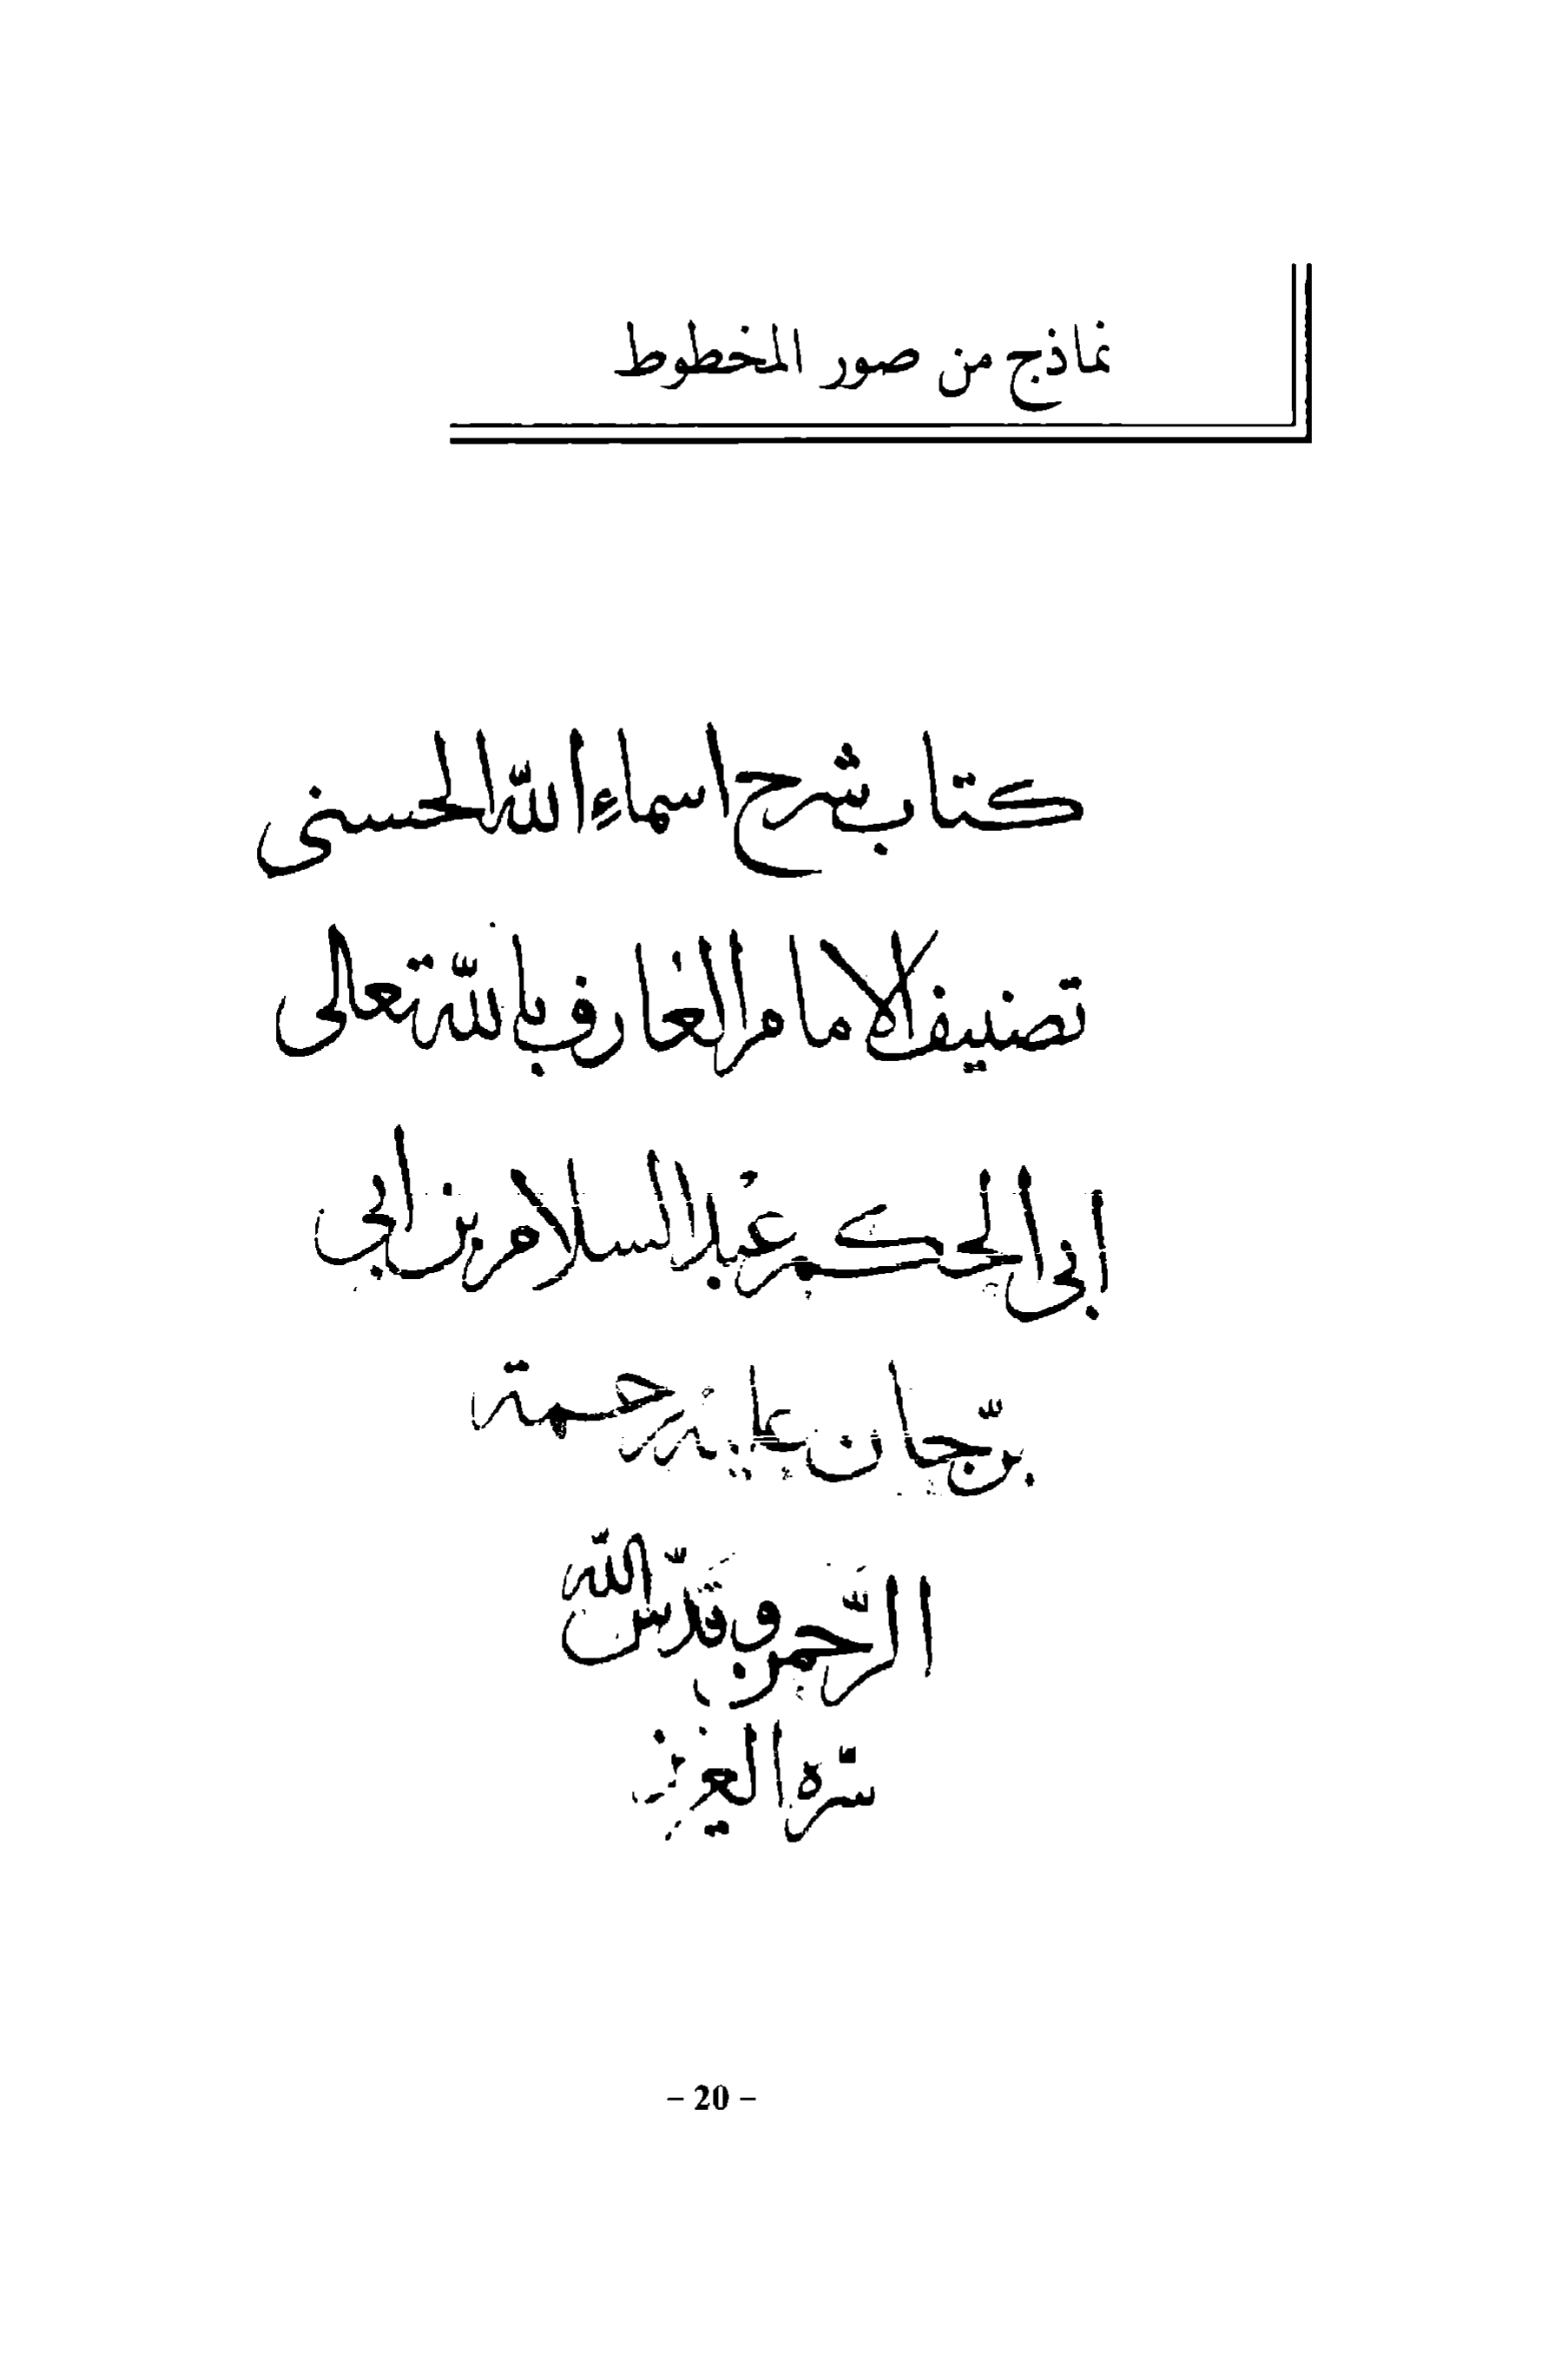 نماذج من صور المخطوط
كتاب شرح اسماء الله الحسنى
تصنيف الامام العارف بالله تعالى
ابى الحكم عبد السلام بن ابي
برّجان عليه رحمة
الرّحمن وقدّس الله
سرّه العزيز
– 20 –